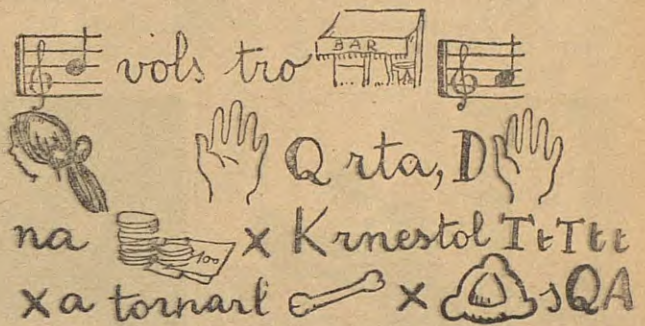 vols tro BAR
Q rta, D
na 100 x Krnestol TtTtt
xa tornarl x sQA